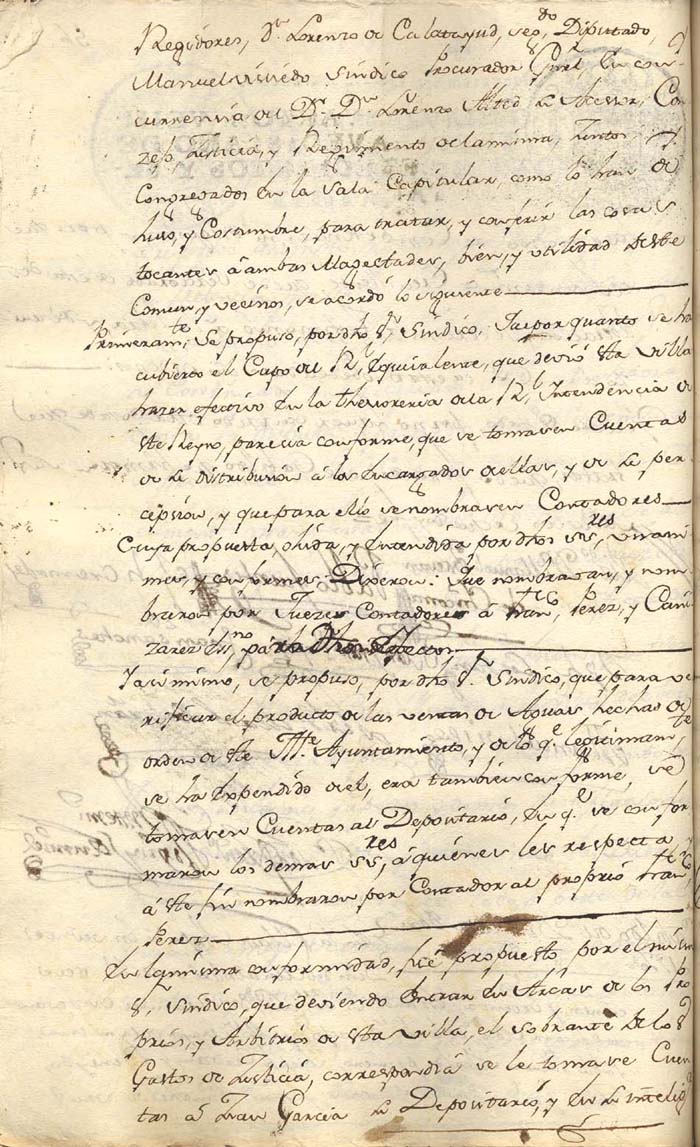 Regidores, Dn. Lorenzo de Calatayud, segdo. Diputado,
Manuel Viviedo Sindico Procurador Gnrl, en con-
currencia del Dr. Dn. Lorenzo Alted de Acesor, Con
zejo Justicia, y Regimiento de la misma, Juntos y
Congregados en la Sala Capitular, como lo han de
huso, y Costumbre, para tratar, y conferir las cosas
tocantes á ambas Magestades, bien, y utilidad de este
Comun, y vecinos, se acordó lo siguiente
Primeramte. Se propuso, por dho Sr. Sindico, Que por quanto se ha
cubierto el Cupo del Rl. Equivalente, que devió esta villa
hazer efectivo en la thesoreria de la Rl. Intendencia de
este Reyno, parecia conforme, que se tomasen Cuentas
de la distribucion á los encargados de ellas, y de la per-
cepcion, y que para ello se nombrasen Contadores
Cuya propuesta ohida, y entendida por dhos SSres, unani
mes, y conformes; Dixeron: Que nombravan, y nom-
braron por Juezes Contadores á Franco. Perez, y Cani
zares Ssno. para dho efecto
Y asimismo, se propuso, por dho Sr. Sindico, que para ve
rificar el producto de las ventas de Aguas hechas de
orden de este Iltre Ayuntamiento, y de lo qe. legitimamte
se ha expendido de el, era tambien conforme, se
tomasen Cuentas al Depositario, en qe. se confor
maron los demas SSres, á quienes les respecta y
á este fin nombraron por Contador al proprio Franco
Perez
En la misma conformidad, fué propuesto por el mismo
Sr. Sindico, que deviendo entrar en Arcas de los Pro
prios, y Arbitrios de esta villa, el sobrante de los
Gastos de Justicia, correspondia se le tomase Cuen
tas á Juan Garcia de Depositario, y en la intelig